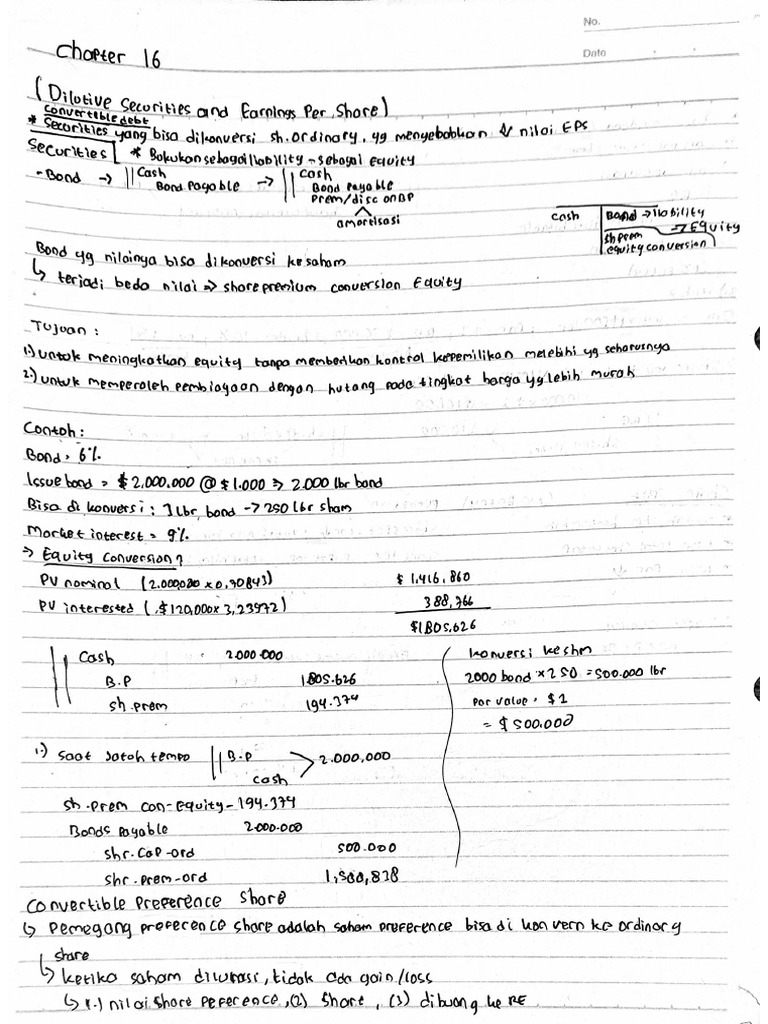 No.
Date
Chapter 16
(Dilutive Securities and Earnings Per Share)
convertible debt
* Securities yang bisa dikonversi sh. ordinary, yg menyebabkan ↓ nilai EPS
Securities * Bakukan sebagai liability - sebagai Equity
- Bond → || Cash → || Cash
Bond Payable Bond Payable
Prem/disc on BP
amortisasi
Cash | Bond → liability
sh prem → Equity
equity conversion
Bond yg nilainya bisa dikonversi ke saham
↳ terjadi beda nilai ⇒ share premium conversion Equity
Tujuan :
1.) untuk meningkatkan equity tanpa memberikan kontrol kepemilikan melebihi yg seharusnya
2.) untuk memperoleh pembiayaan dengan hutang pada tingkat harga yg lebih murah
Contoh :
Bond = 6%
Issue bond = $ 2,000.000 @ $ 1.000 ⇒ 2.000 lbr bond
Bisa di konversi : 1 lbr bond → 250 lbr sham
Market interest = 9%
⇒ Equity Conversion?
PV nominal (2.000,000 x 0,70843) $ 1,416,860
PV interested ( $120,000 x 3,23972) 388,766
$1.805.626
Cash 2.000.000
B.P 1.805.626
sh. prem 194.374
konversi ke shm
2000 bond x 250 = 500.000 lbr
Par value = $ 1
= $ 500.000
1.) Saat jatoh tempo || B.P > 2.000,000
cash
sh. prem con-Equity - 194.374
Bonds Payable 2.000.000
shr. cap-ord 500.000
shr. prem-ord
Convertible Preference Share
↳ Pemegang preference share adalah saham preference bisa di konvern ke ordinary
share
↳ ketika saham dilunasi, tidak ada gain/loss
↳ (1.) nilai share Peference, (2) share, (3) dibuang ke RE